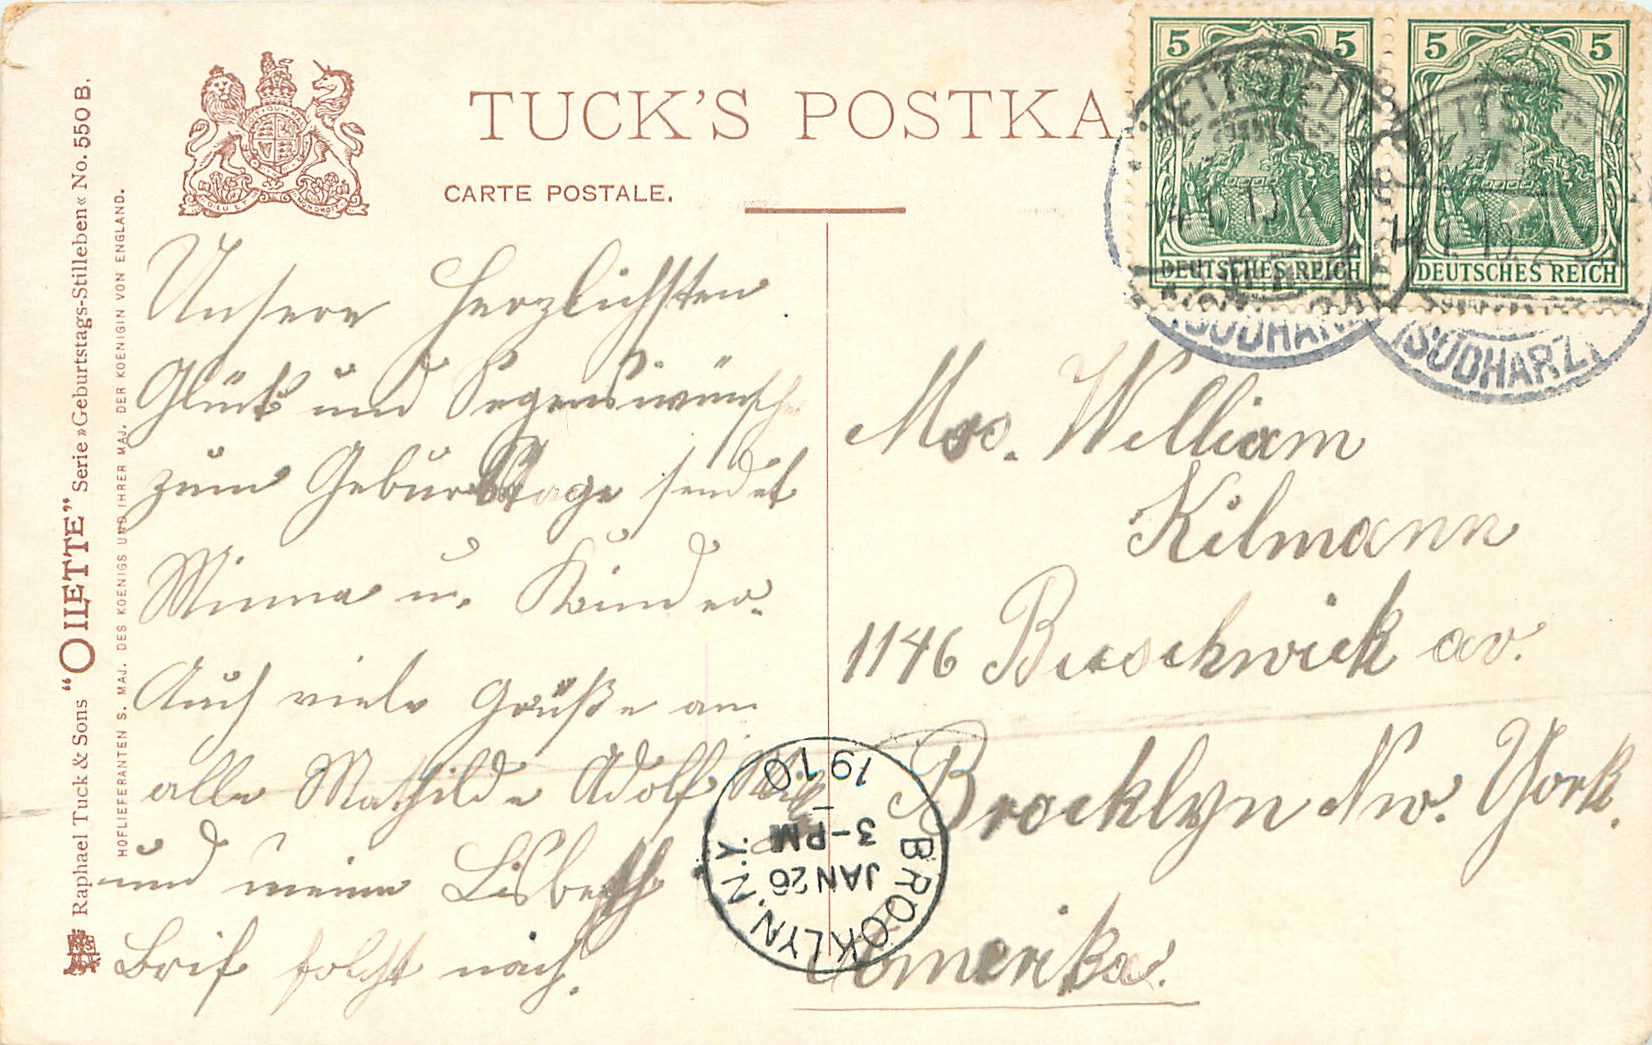 TUCK'S POSTKA
CARTE POSTALE.
Raphael Tuck & Sons "OILETTE" Serie »Geburtstags-Stilleben« No. 550 B.
HOFLIEFERANTEN S. MAJ. DES KOENIGS UND IHRER MAJ. DER KOENIGIN VON ENGLAND.
5 5
DEUTSCHES REICH
5 5
DEUTSCHES REICH
(SÜDHARZ)
(SÜDHARZ)
Unsere herzlichsten
Glück und Segenswünsche
zum Geburtstage sendet
Minna u. Kinder.
Auch viele Grüße an
alle Mathilde Adolf
und meine Lisbeth
Brif folgt nach.
Mrs. William
Kilmann
1146 Buschwick av.
Brocklyn Nw. York.
Amerika.
BROOKLYN, N.Y.
JAN 26
3-PM
1910